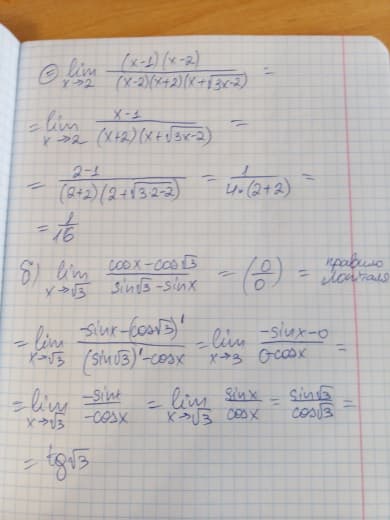 = lim x→2 (x-1)(x-2) / (x-2)(x+2)(x+√3x-2) =
= lim x→2 x-1 / (x+2)(x+√3x-2) =
= 2-1 / (2+2)(2+√3·2-2) = 1 / 4·(2+2) =
= 1/16
б) lim x→√3 cosx-cos√3 / sin√3-sinx = (0/0) = правило Лопиталя
= lim x→√3 -sinx-(cos√3)' / (sin√3)'-cosx = lim x→3 -sinx-0 / 0-cosx =
= lim x→√3 -sinx / -cosx = lim x→√3 sinx / cosx = sin√3 / cos√3 =
= tg√3